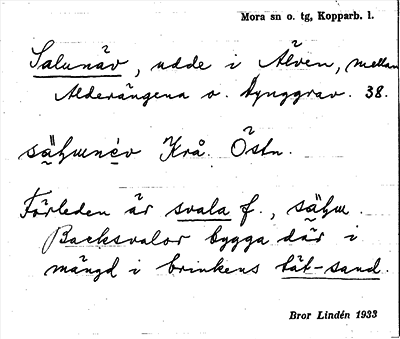 Mora sn o. tg, Kopparb. l.
Salunäv, udde i Älven, mellan
Alderängena o. Lynggrav. 38.
Krå. Östn.
Förleden är svala f.,
Backsvalor bygga där i
mängd i brinkens täk-sand.
Bror Lindén 1933